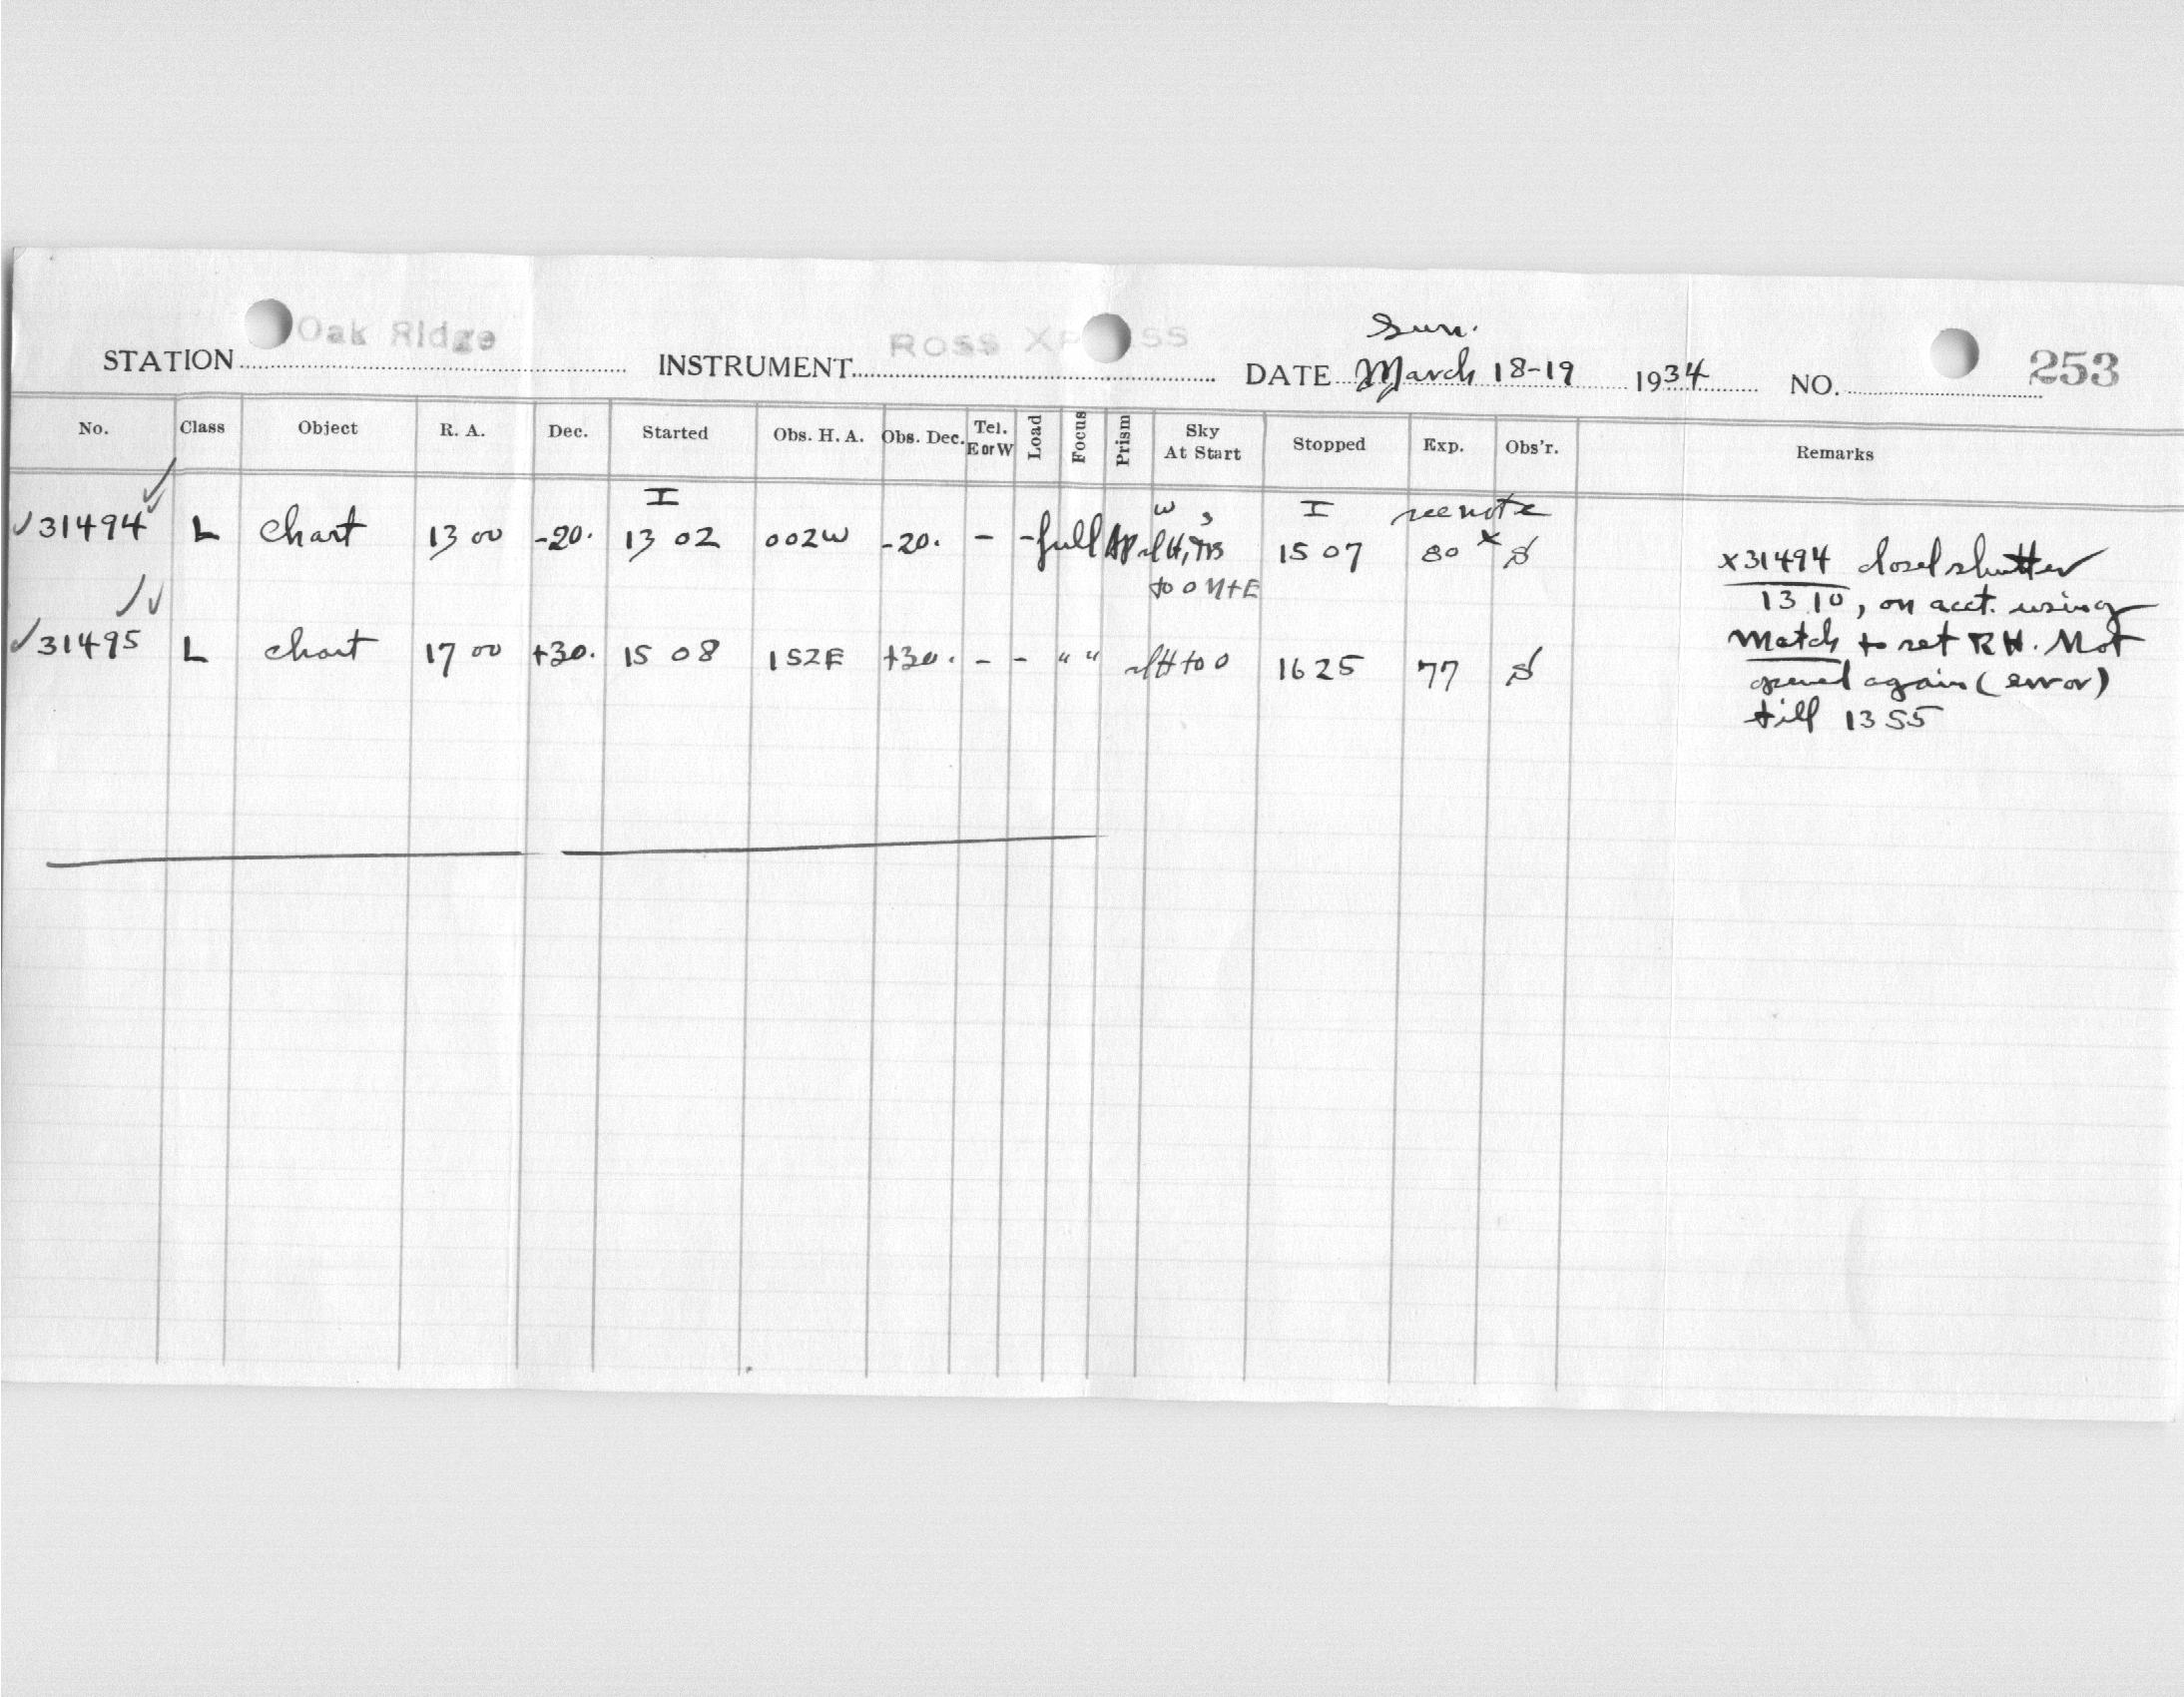 Sun.
STATION Oak Ridge INSTRUMENT Ross Xpress DATE March 18-19 1934 NO. 253
No. Class Object R. A. Dec. Started Obs. H. A. Obs. Dec. Tel. E or W Load Focus Prism Sky At Start Stopped Exp. Obs'r. Remarks
I w s I see note
✓31494 L chart 13 00 -20. 13 02 002W -20. - - full Ap 15 07 80 x S
to 0 N+E
✓31495 L chart 17 00 +30. 15 08 152E +30. - - " " H to 0 16 25 77 S
x31494 closed shutter
13 10, on acct. using
Match to set RH. Not
opened again (error)
till 13 55